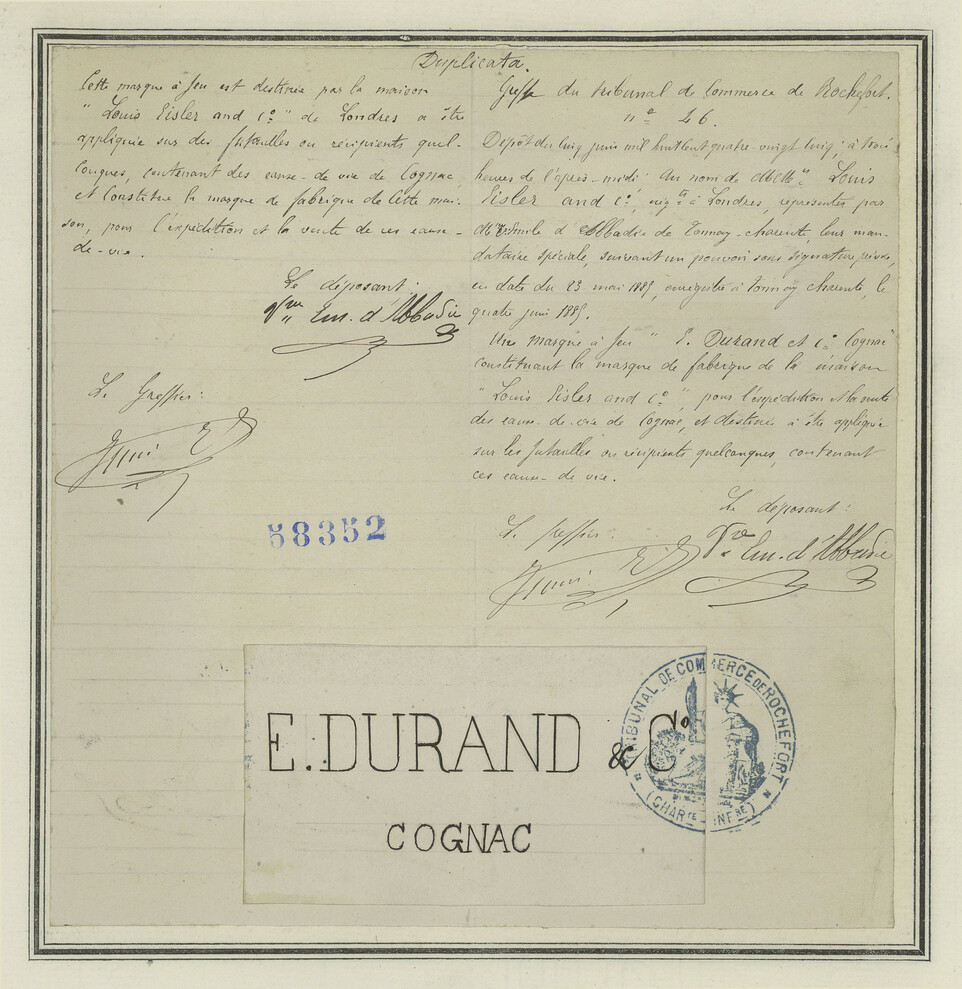 Duplicata.
Cette marque à feu est destinée par la maison
" Louis Eisler and Co " de Londres a être
appliquée sur des futailles ou récipients quel-
conques, contenant des eaux-de vie de Cognac,
et constitue la marque de fabrique de cette mai-
son, pour l'expédition et la vente de ces eaux-
de-vie.
Le déposant:
Em. d'Abbadie
Le Greffier:
58352
Greffe du tribunal de Commerce de Rochefort.
no 46.
Dépôt du cinq juin mil huit cent quatre-vingt cinq, à trois
heures de l'après-midi. Au nom de Louis
Eisler and Co, négts à Londres, représentés par
Mr Emile d'Abbadie de Tonnay-charente, leur man-
dataire spécial, suivant un pouvoir sous signature privée,
en date du 23 mai 1885, enregistré à Tonnay charente, le
quatre juin 1885.
Une marque à feu " E. Durand et Co Cognac
constituant la marque de fabrique de la maison
" Louis Eisler and Co ", pour l'expédition et la vente
des eaux-de-vie de Cognac, et destinée à être appliquée
sur les futailles ou récipients quelconques, contenant
ces eaux-de vie.
Le déposant:
Le greffier:
Em. d'Abbadie
E. DURAND & Co
COGNAC
TRIBUNAL DE COMMERCE DE ROCHEFORT
(CHARte INFre)